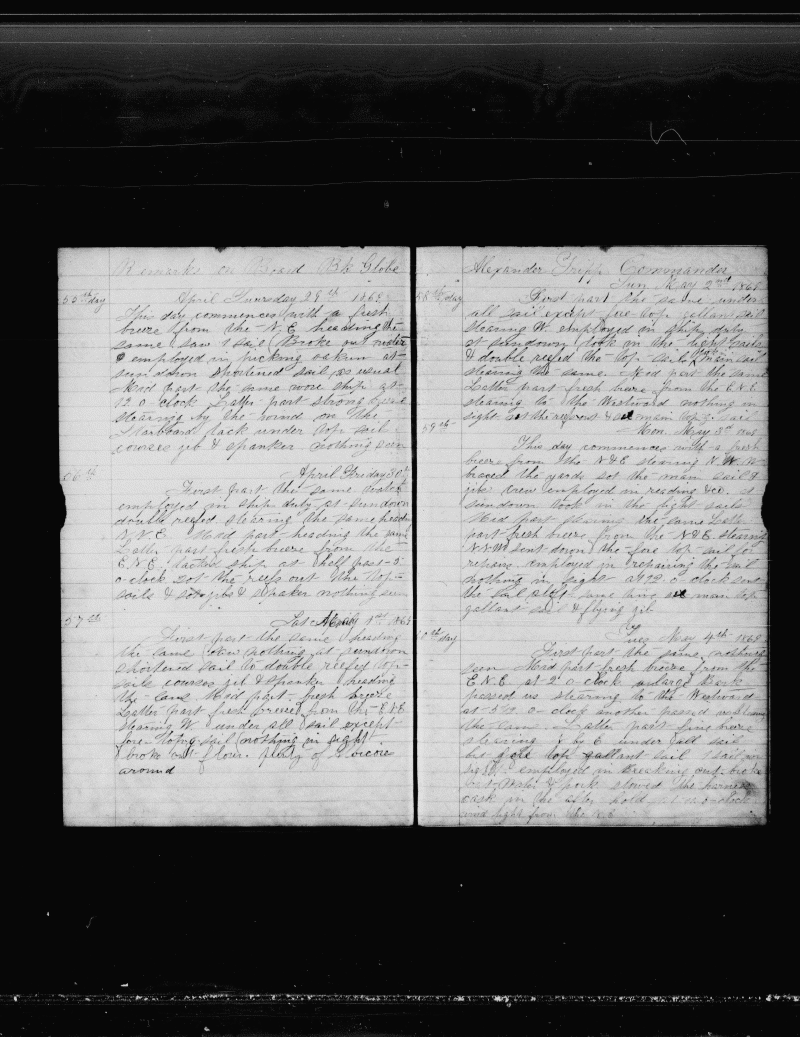 Remarks on Board Bk Globe
55th day April Thursday 29th 1869
This day commences with a fresh
breeze from the N.E. heading the
same saw 1 sail Broke out water
& employed in picking oakum at
sundown shortened sail as usual
Mid part the same wore ship at
12 o clock Latter part strong breeze
stearing by the wind on the
Starboard tack under top sail
courses gib & spanker nothing seen
56th April Friday 30th
First part the same
employed in ship duty at sundown
double reefed stearing the same heading
Mid part heading the same
Latter part fresh breeze from the
E.N.E. tacked ship at half past 5
o clock sot the reefs out the top
sails & sot gib & spanker nothing seen
57th Sat May 1st 1869
First part the same heading
the same nothing at sundown
shortened sail to double reefed top
sails courses gib & spanker heading
the same Mid part fresh breeze
Latter part fresh breeze from the E.N.E
stearing W. under all sail except
fore top g. sail nothing in sight
broke out flour plenty of
around
Alexander Tripp Commander
Sun May 2nd 1869
58th day First part the same under
all sail except fore top gallant sail
stearing W. employed in ship duty
at sundown took in the light sails
& double reefed the top sails main sail
stearing the same. Mid part the same
Latter part fresh breeze from the E.N.E
stearing to the Westward nothing in
sight sot the reefs out & main top g. sail
59th Mon. May 3rd
This day commences with a fresh
breeze from the N.E stearing N.W. W
braced the yards sot the main sail &
gib crew employed in reading &co. at
sundown took in the light sails
Mid part stearing the same Latter
part fresh breeze from the N.E. stearing
N.N.W sent down the fore top sail for
repairs employed in repairing the sail
nothing in sight at 12 o clock sent
the sail aloft same time main top
gallant sail & flying gib
60th day Tues May 4th 1869
First part the same, nothing
seen Mid part fresh breeze from the
E.N.E. at 2 o clock a large Bark
passed us stearing to the Westward
at o clock another passed us stearing
the same Latter part fine breeze
stearing under all sail
but fore top gallant sail 1 sail
employed in breaking out broke
out & pork stowed the harness
cask in the after hold at o clock
wind light from the N.E